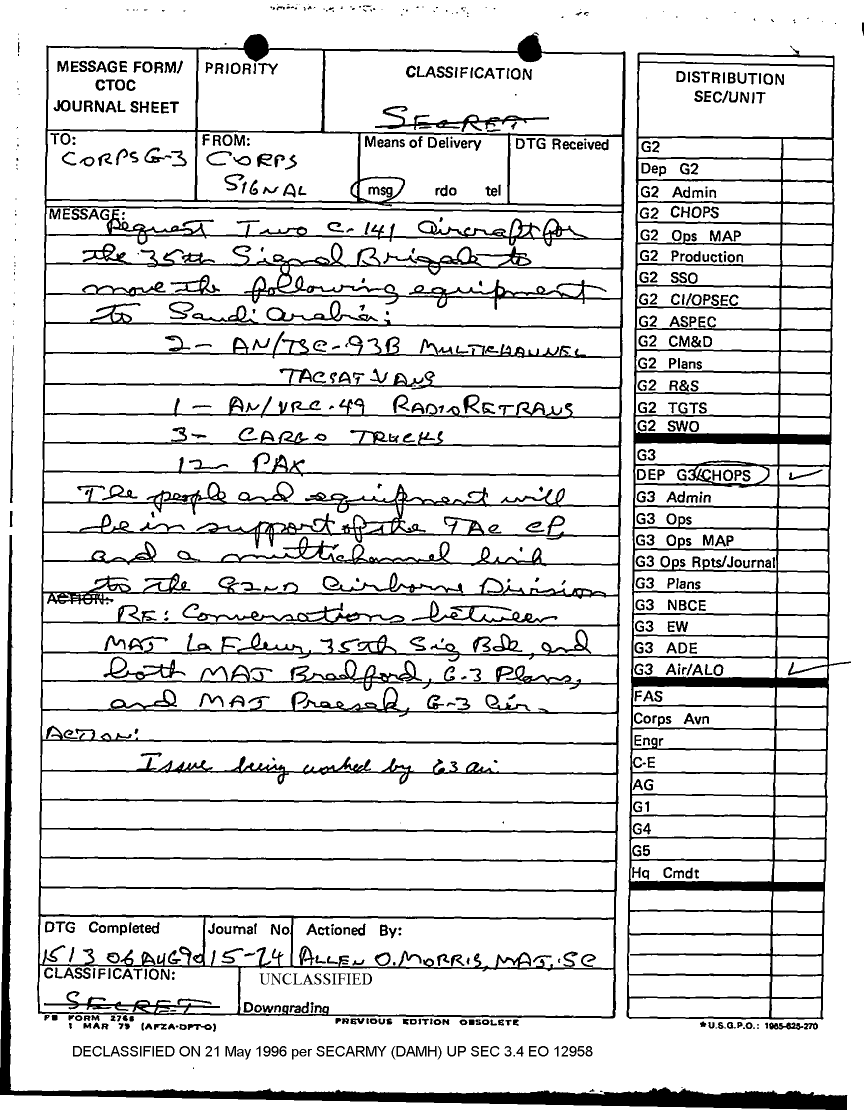 MESSAGE FORM/
CTOC
JOURNAL SHEET
PRIORITY
CLASSIFICATION
SECRET
TO:
CORPS G-3
FROM:
CORPS
SIGNAL
Means of Delivery
msg rdo tel
DTG Received
MESSAGE:
Request Two C-141 Aircraft for
the 35th Signal Brigade to
move the following equipment
to Saudi Arabia:
2- AN/TSC-93B MULTICHANNEL
TACSAT VANS
1 - AN/VRC-49 RADIO RETRANS
3- CARGO TRUCKS
12- PAX
The people and equipment will
be in support of the TAC CP,
and a multichannel link
to the 82ND Airborne Division
ACTION:
RE: Conversations between
MAJ LaFleur, 35th Sig Bde, and
both MAJ Bradford, G-3 Plans,
and MAJ Praesak, G-3 Air.
ACTION:
Issue being worked by G3 air.
DTG Completed
1513 06AUG90
Journal No
15-24
Actioned By:
ALLEN O. MORRIS, MAJ, SC
CLASSIFICATION:
SECRET
UNCLASSIFIED
Downgrading
FB FORM 2768
1 MAR 79 (AFZA-DPT-O)
PREVIOUS EDITION OBSOLETE
DISTRIBUTION
SEC/UNIT
G2
Dep G2
G2 Admin
G2 CHOPS
G2 Ops MAP
G2 Production
G2 SSO
G2 CI/OPSEC
G2 ASPEC
G2 CM&D
G2 Plans
G2 R&S
G2 TGTS
G2 SWO
G3
DEP G3/CHOPS
G3 Admin
G3 Ops
G3 Ops MAP
G3 Ops Rpts/Journal
G3 Plans
G3 NBCE
G3 EW
G3 ADE
G3 Air/ALO
FAS
Corps Avn
Engr
C-E
AG
G1
G4
G5
Hq Cmdt
*U.S.G.P.O.: 1985-625-270
DECLASSIFIED ON 21 May 1996 per SECARMY (DAMH) UP SEC 3.4 EO 12958